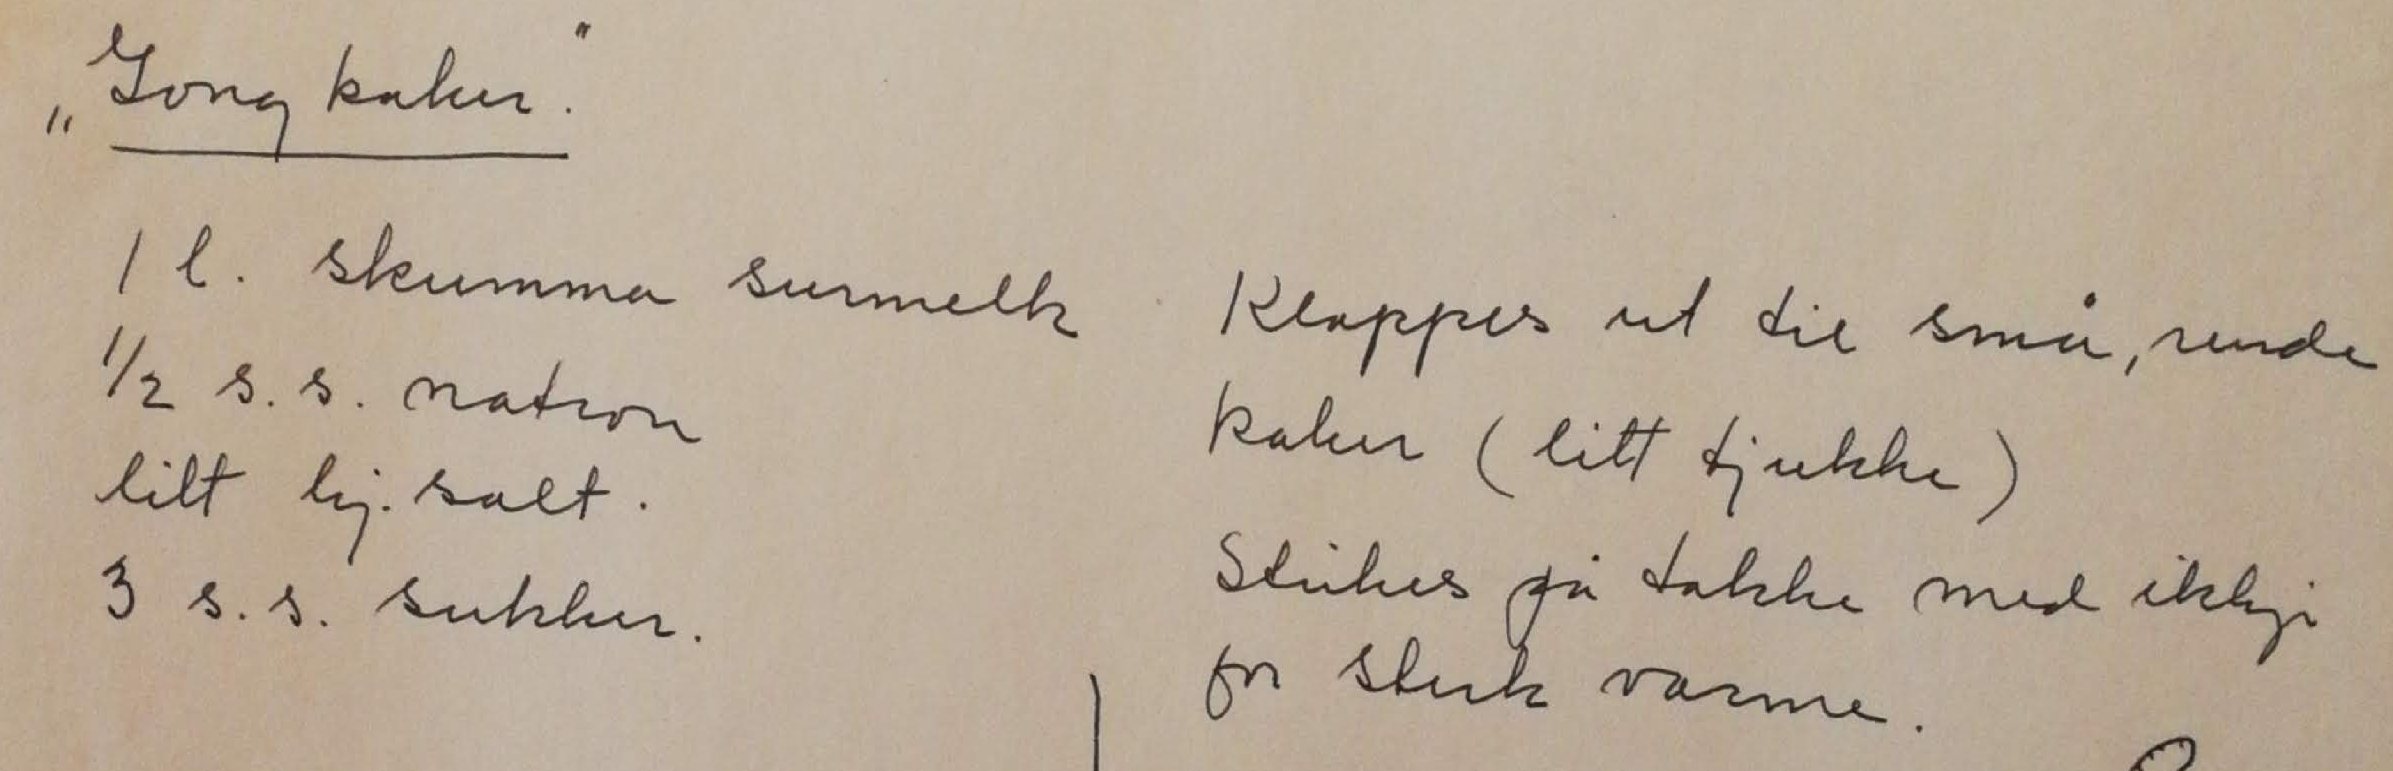 „Gong kaker."
1 l. skumma surmelk
1/2 s.s. natron
litt hj. salt.
3 s.s. sukker.
Klappes ut til små, runde
kaker (litt tjukke)
Stekes på takke med ikkje
for sterk varme.